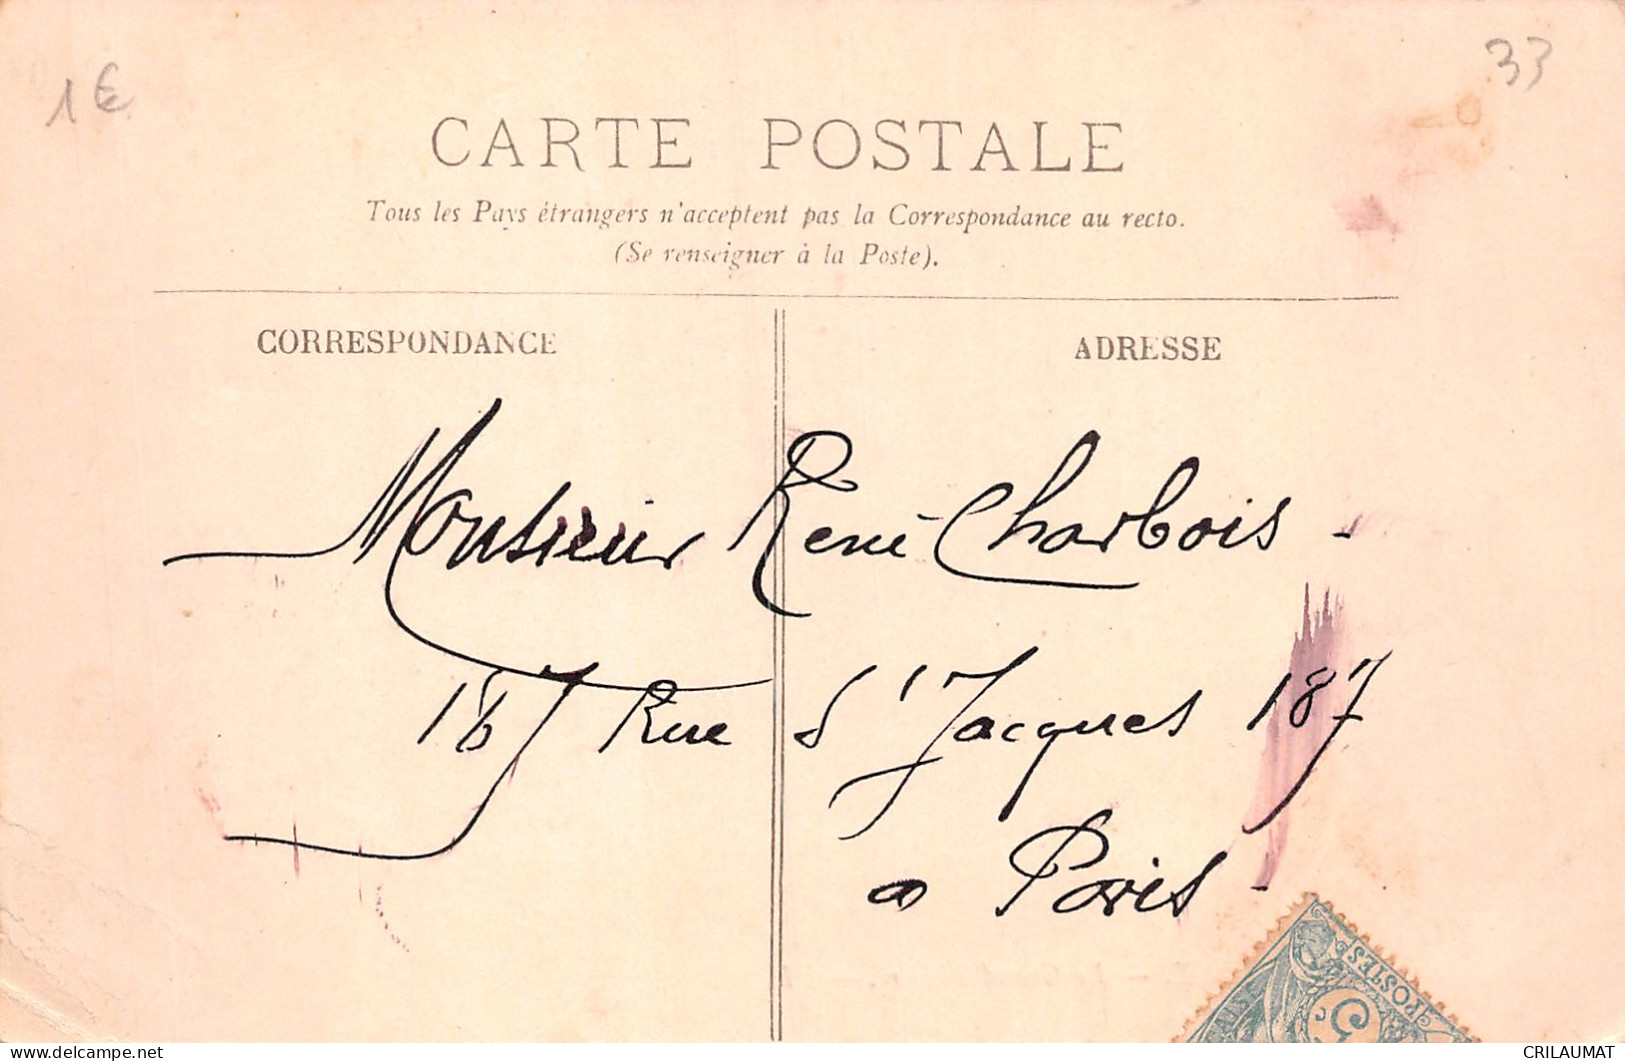 1€
33
CARTE POSTALE
Tous les Pays étrangers n'acceptent pas la Correspondance au recto.
(Se renseigner à la Poste).
CORRESPONDANCE
ADRESSE
Monsieur René Charbois -
187 Rue St Jacques 187
a Paris -
POSTES
5c
delcampe.net
CRILAUMAT